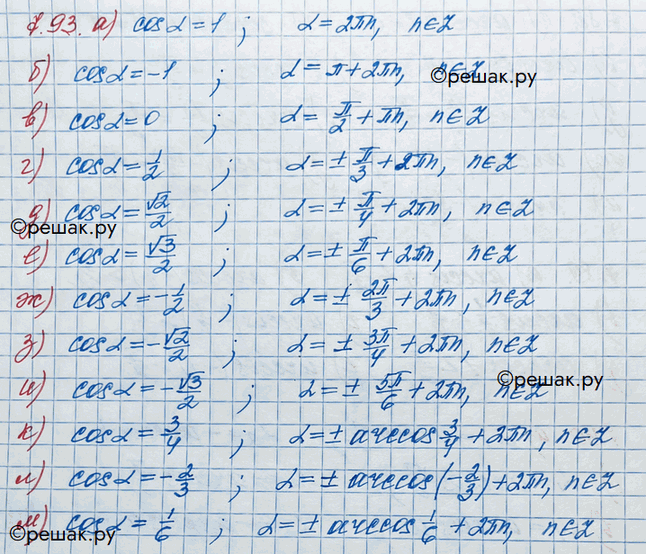 7.93. а) cosα = 1 ; α = 2πn, n∈Z
б) cosα = -1 ; α = π + 2πn, n∈Z
©решак.ру
в) cosα = 0 ; α = π/2 + πn, n∈Z
г) cosα = 1/2 ; α = ± π/3 + 2πn, n∈Z
д) cosα = √2/2 ; α = ± π/4 + 2πn, n∈Z
©решак.ру
е) cosα = √3/2 ; α = ± π/6 + 2πn, n∈Z
ж) cosα = -1/2 ; α = ± 2π/3 + 2πn, n∈Z
з) cosα = -√2/2 ; α = ± 3π/4 + 2πn, n∈Z
и) cosα = -√3/2 ; α = ± 5π/6 + 2πn, n∈Z
©решак.ру
к) cosα = 3/4 ; α = ± arccos 3/4 + 2πn, n∈Z
л) cosα = -2/3 ; α = ± arccos(-2/3) + 2πn, n∈Z
м) cosα = 1/6 ; α = ± arccos 1/6 + 2πn, n∈Z
©решак.ру